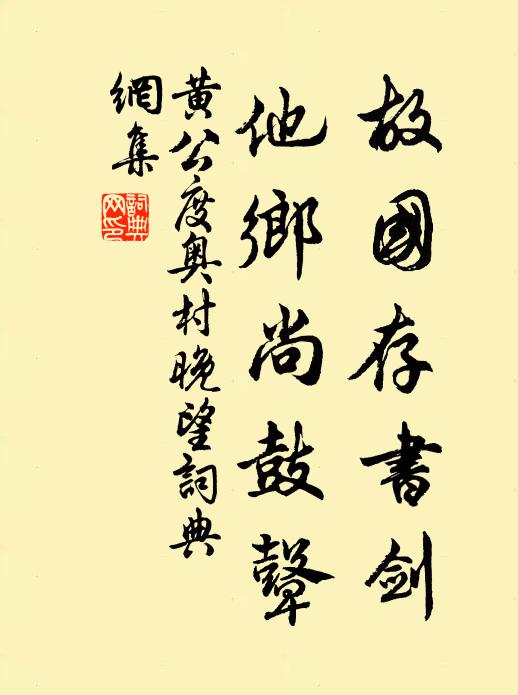 故國存書劍
他鄉尚鼓鼙
黃公度奧村晚望詞典
網集
詞典
网印